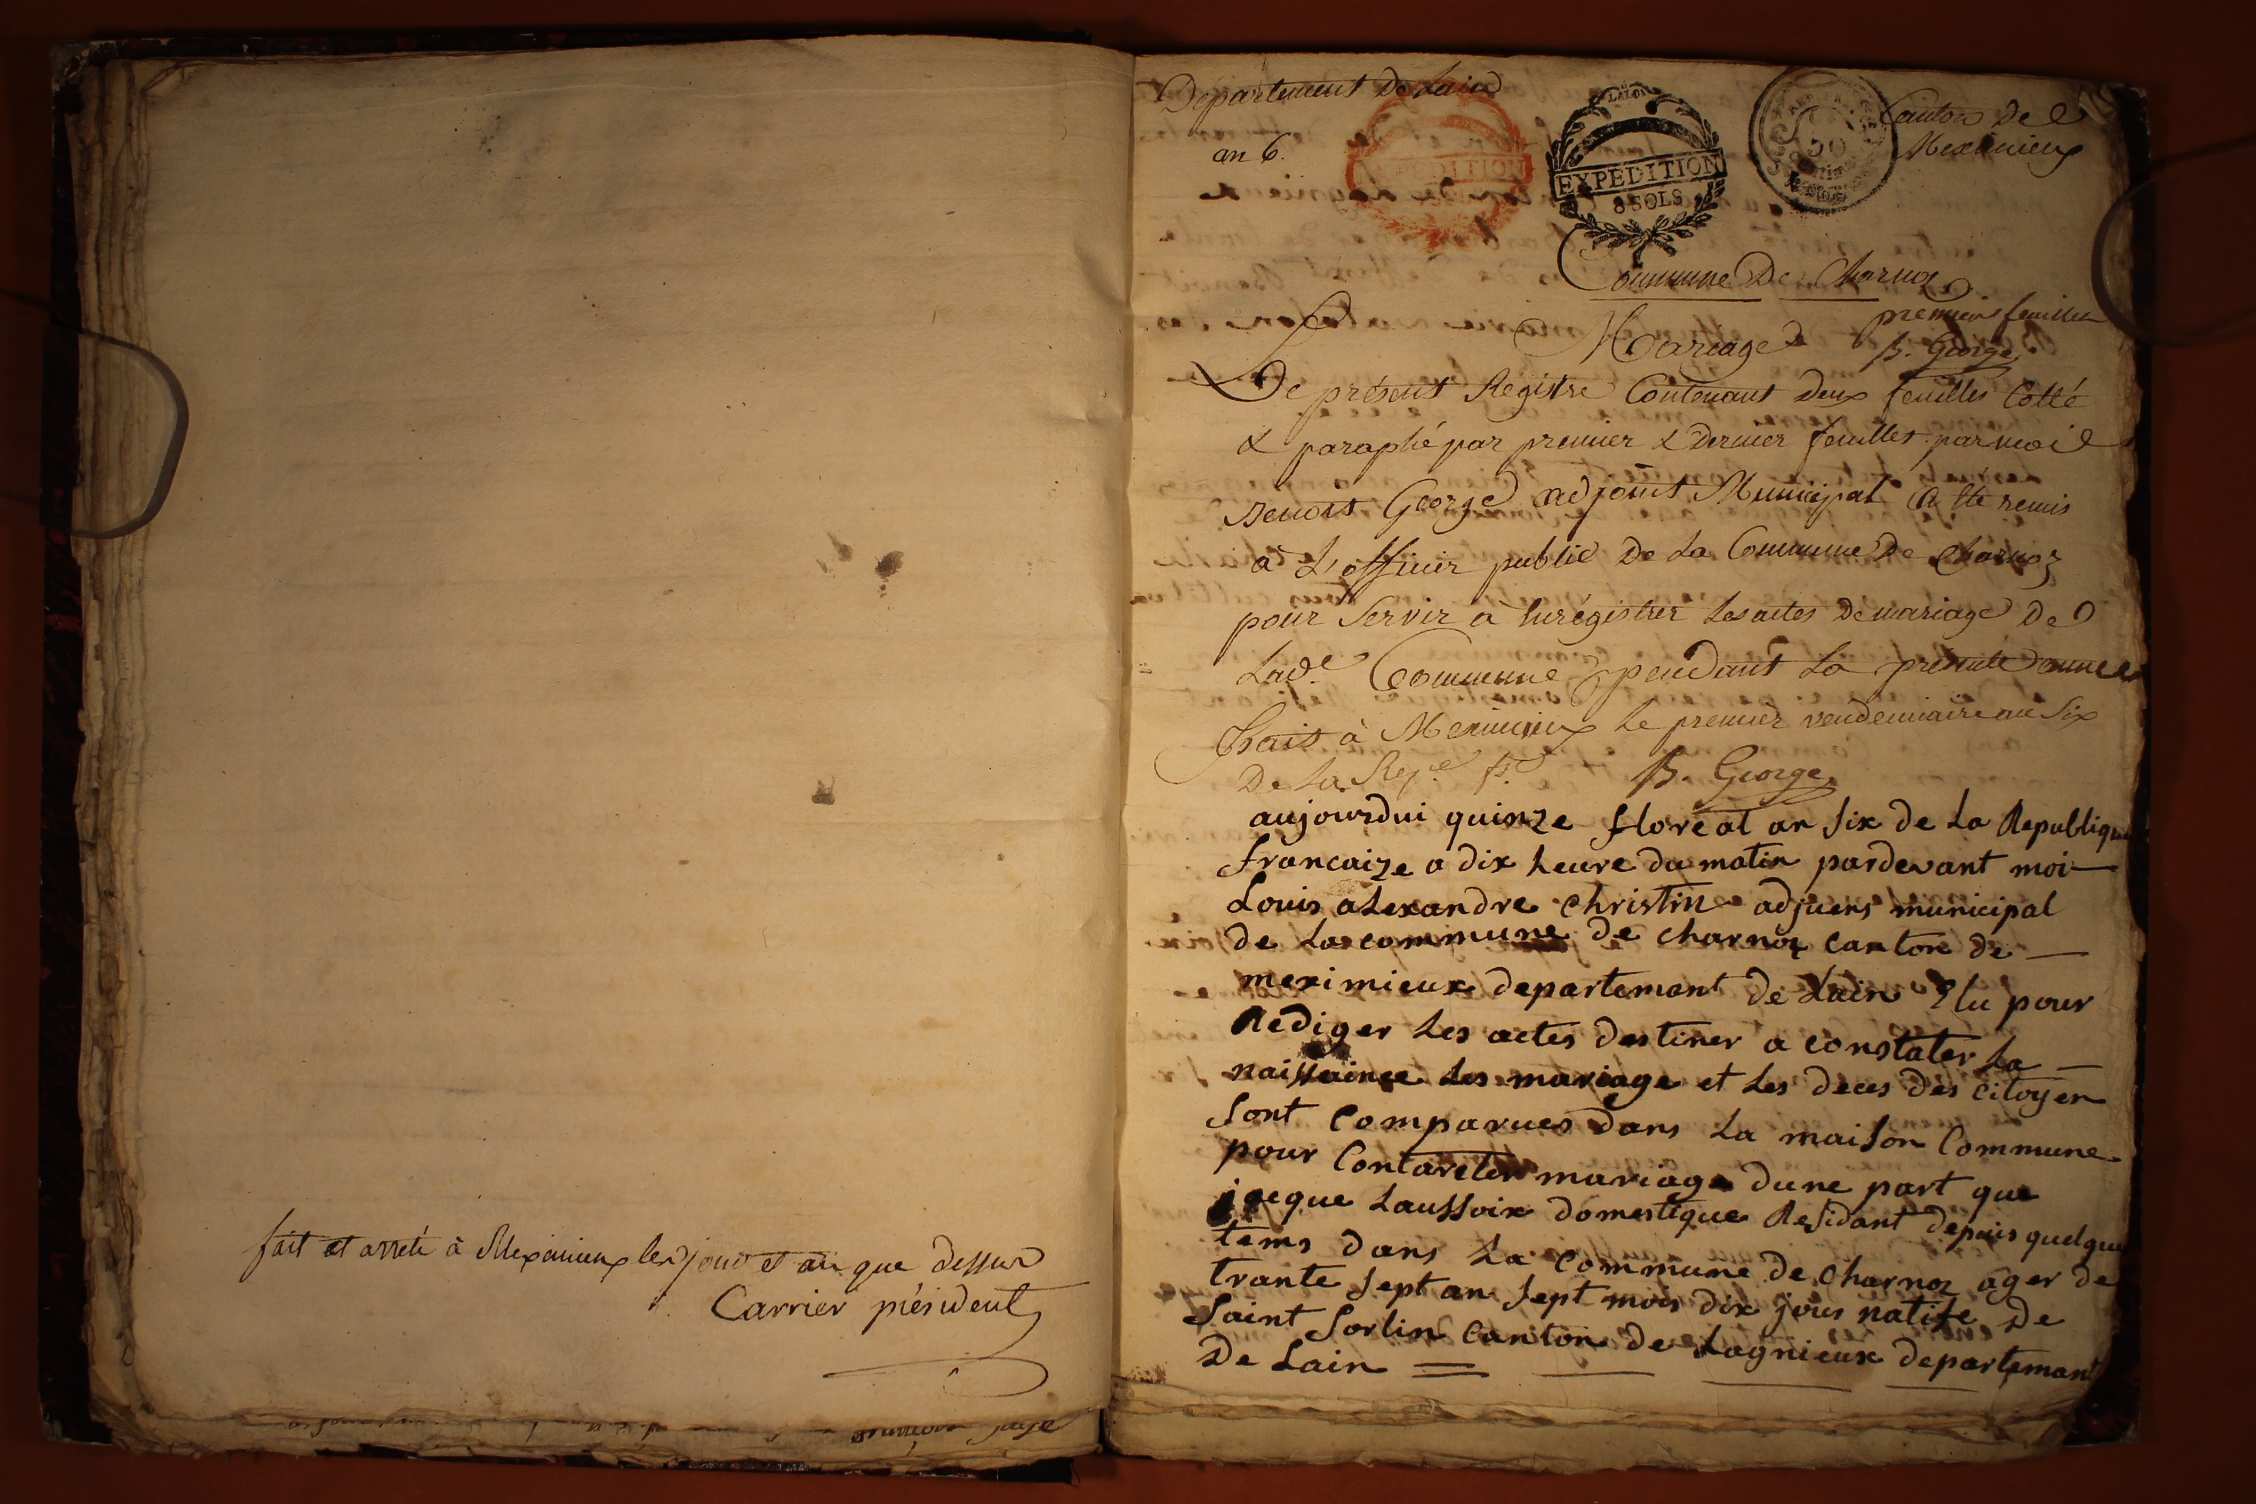 fait et arreté à Meximieux les jour et an que dessus
Carrier président
Departement de Lain
an 6.
EXPEDITION
EXPEDITION
8 SOLS
Canton de
Meximieux
Commune De Charnoz
premier feuillet
Mariage
B. George
Le présent Registre Contenant deux feuilles Cotté
& paraphé par premier & dernier feuillet par moi
Benoit George adjoint Municipal a été remis
à L'officier public De La Commune De Charnoz
pour servir à Enrégistrer Les actes De mariage De
Lad.e Commune pendant La présente année
Fait à Meximieux Le premier vendemiaire an Six
De La Rep.e f.se
B. George
aujourdui quinze floreal an six de La Republique
francaize a dix heure du matin pardevant moi
Louis aLexandre christin adjuens municipal
de La commune de charnoz canton de
meximieux departemant de Lain Elu pour
Rediger Les actes destiner a constater La
naissaince Les mariage et Les deces des citoyen
sont comparues dans La maison Commune
pour Contareter mariage dune part que
jacque Laussoix domestique Residant depuis quelque
tems dans La commune de charnoz ager de
trante sept an sept mois dix jours natife de
saint sorlin canton de Lagnieux departemant
De Lain